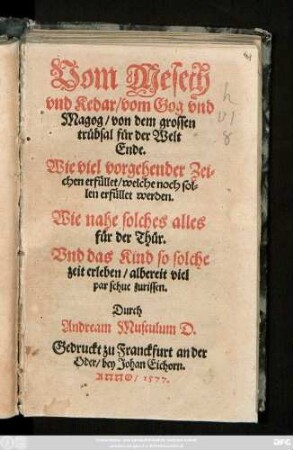 Vom Mesech
vnd Kedar/vom Gog vnd
Magog/von dem grossen
trübsal für der Welt
Ende.
Wie viel vorgehender Zei-
chen erfüllet/welche noch sol-
len erfüllet werden.
Wie nahe solches alles
für der Thür.
Vnd das Kind so solche
zeit erleben/albereit viel
par schue zurissen.
Durch
Andream Musculum D.
Gedruckt zu Franckfurt an der
Oder/bey Johan Eichorn.
ANNO/1577.
h
VI
8